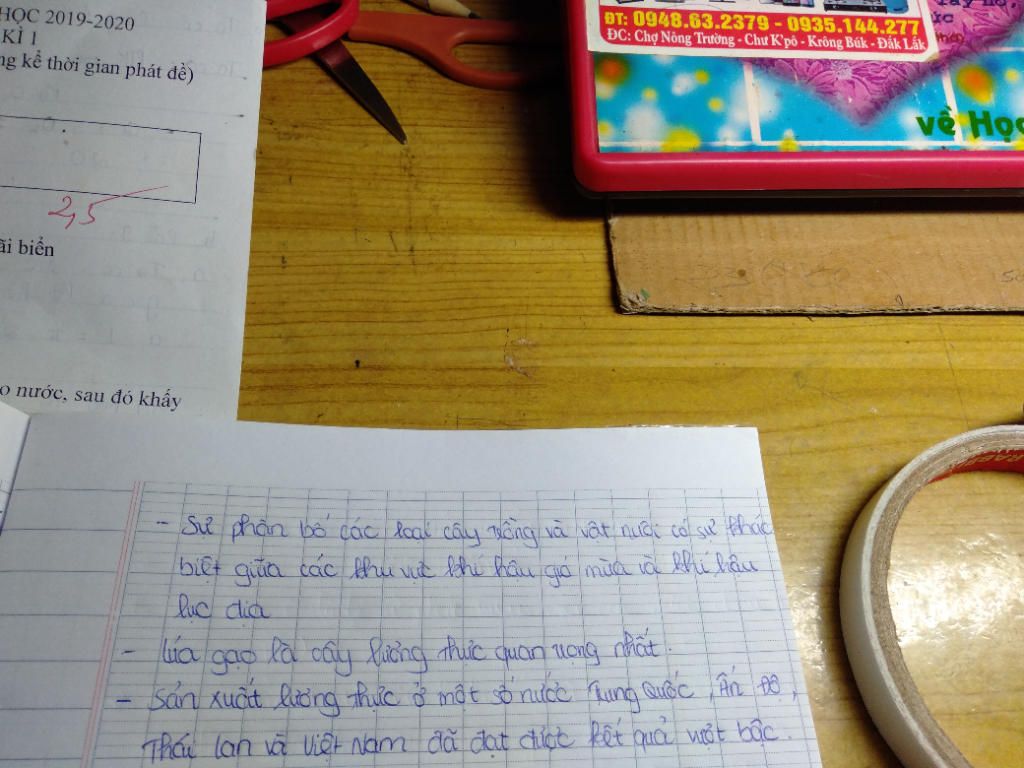 HỌC 2019-2020
KÌ 1
ng kể thời gian phát đề)
2,5
ãi biển
o nước, sau đó khấy
ĐT: 0948.63.2379 - 0935.144.277
ĐC: Chợ Nông Trường - Chư K'pô - Krông Búk - Đắk Lắk
về Học
- Sự phân bố các loại cây trồng và vật nuôi có sự khác
biệt giữa các khu vực khí hậu gió mùa và khí hậu
lục địa
- Lúa gạo là cây lương thực quan trọng nhất.
- Sản xuất lương thực ở một số nước Trung Quốc, Ấn Độ,
Thái lan và Việt Nam đã đạt được kết quả vượt bậc.